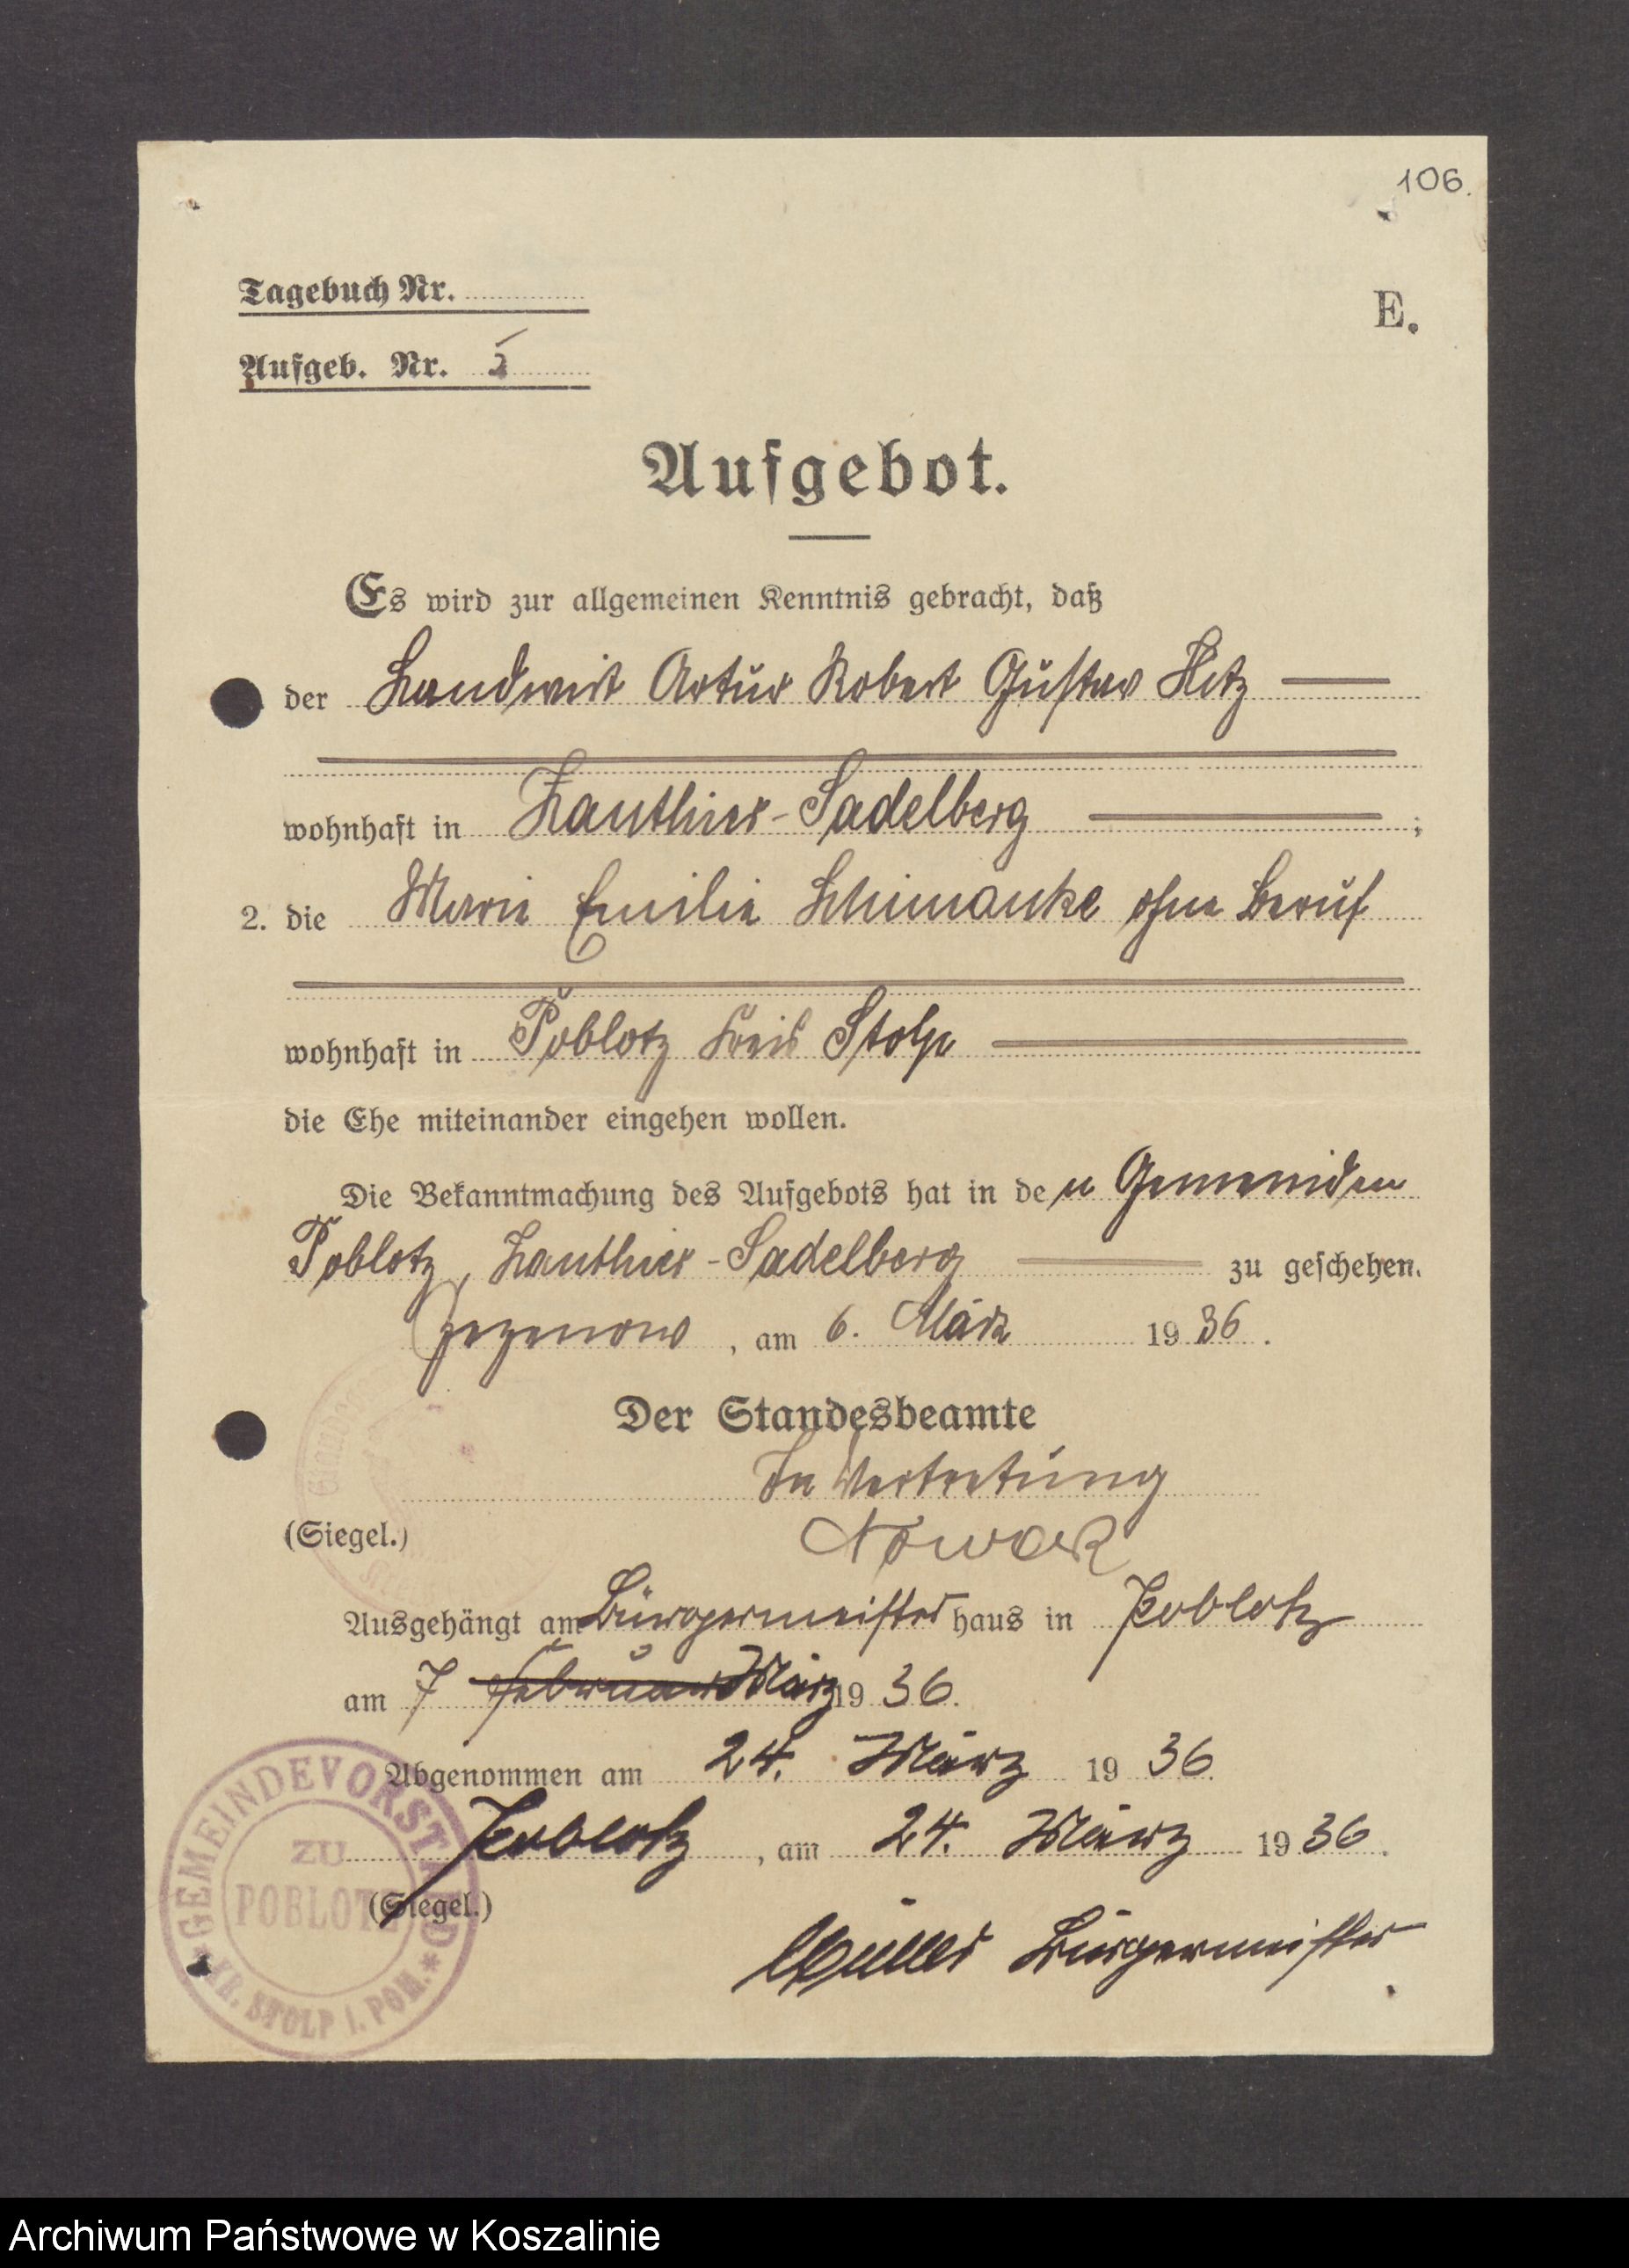 106.
Tagebuch Nr.
E.
Aufgeb. Nr. 5
Aufgebot.
Es wird zur allgemeinen Kenntnis gebracht, daß
der Landwirt Artur Robert Gustav
wohnhaft in Zauthier-Sadelberg ;
2. die Marie Emilie Schimanke ohne Beruf
wohnhaft in Poblotz Kreis Stolp
die Ehe miteinander eingehen wollen.
Die Bekanntmachung des Aufgebots hat in den Gemeinden
Poblotz, Zauthier-Sadelberg zu geschehen.
Zezenow, am 6. März 1936.
Der Standesbeamte
In Vertretung
(Siegel.)
Nowack
Ausgehängt am Bürgermeisterhaus in Poblotz
am 7 Februar März 1936.
Abgenommen am 24. März 1936.
Poblotz, am 24. März 1936.
(Siegel.)
GEMEINDEVORSTAND
ZU
POBLOTZ
KR. STOLP I. POM.
Müller Bürgermeister
Archiwum Państwowe w Koszalinie